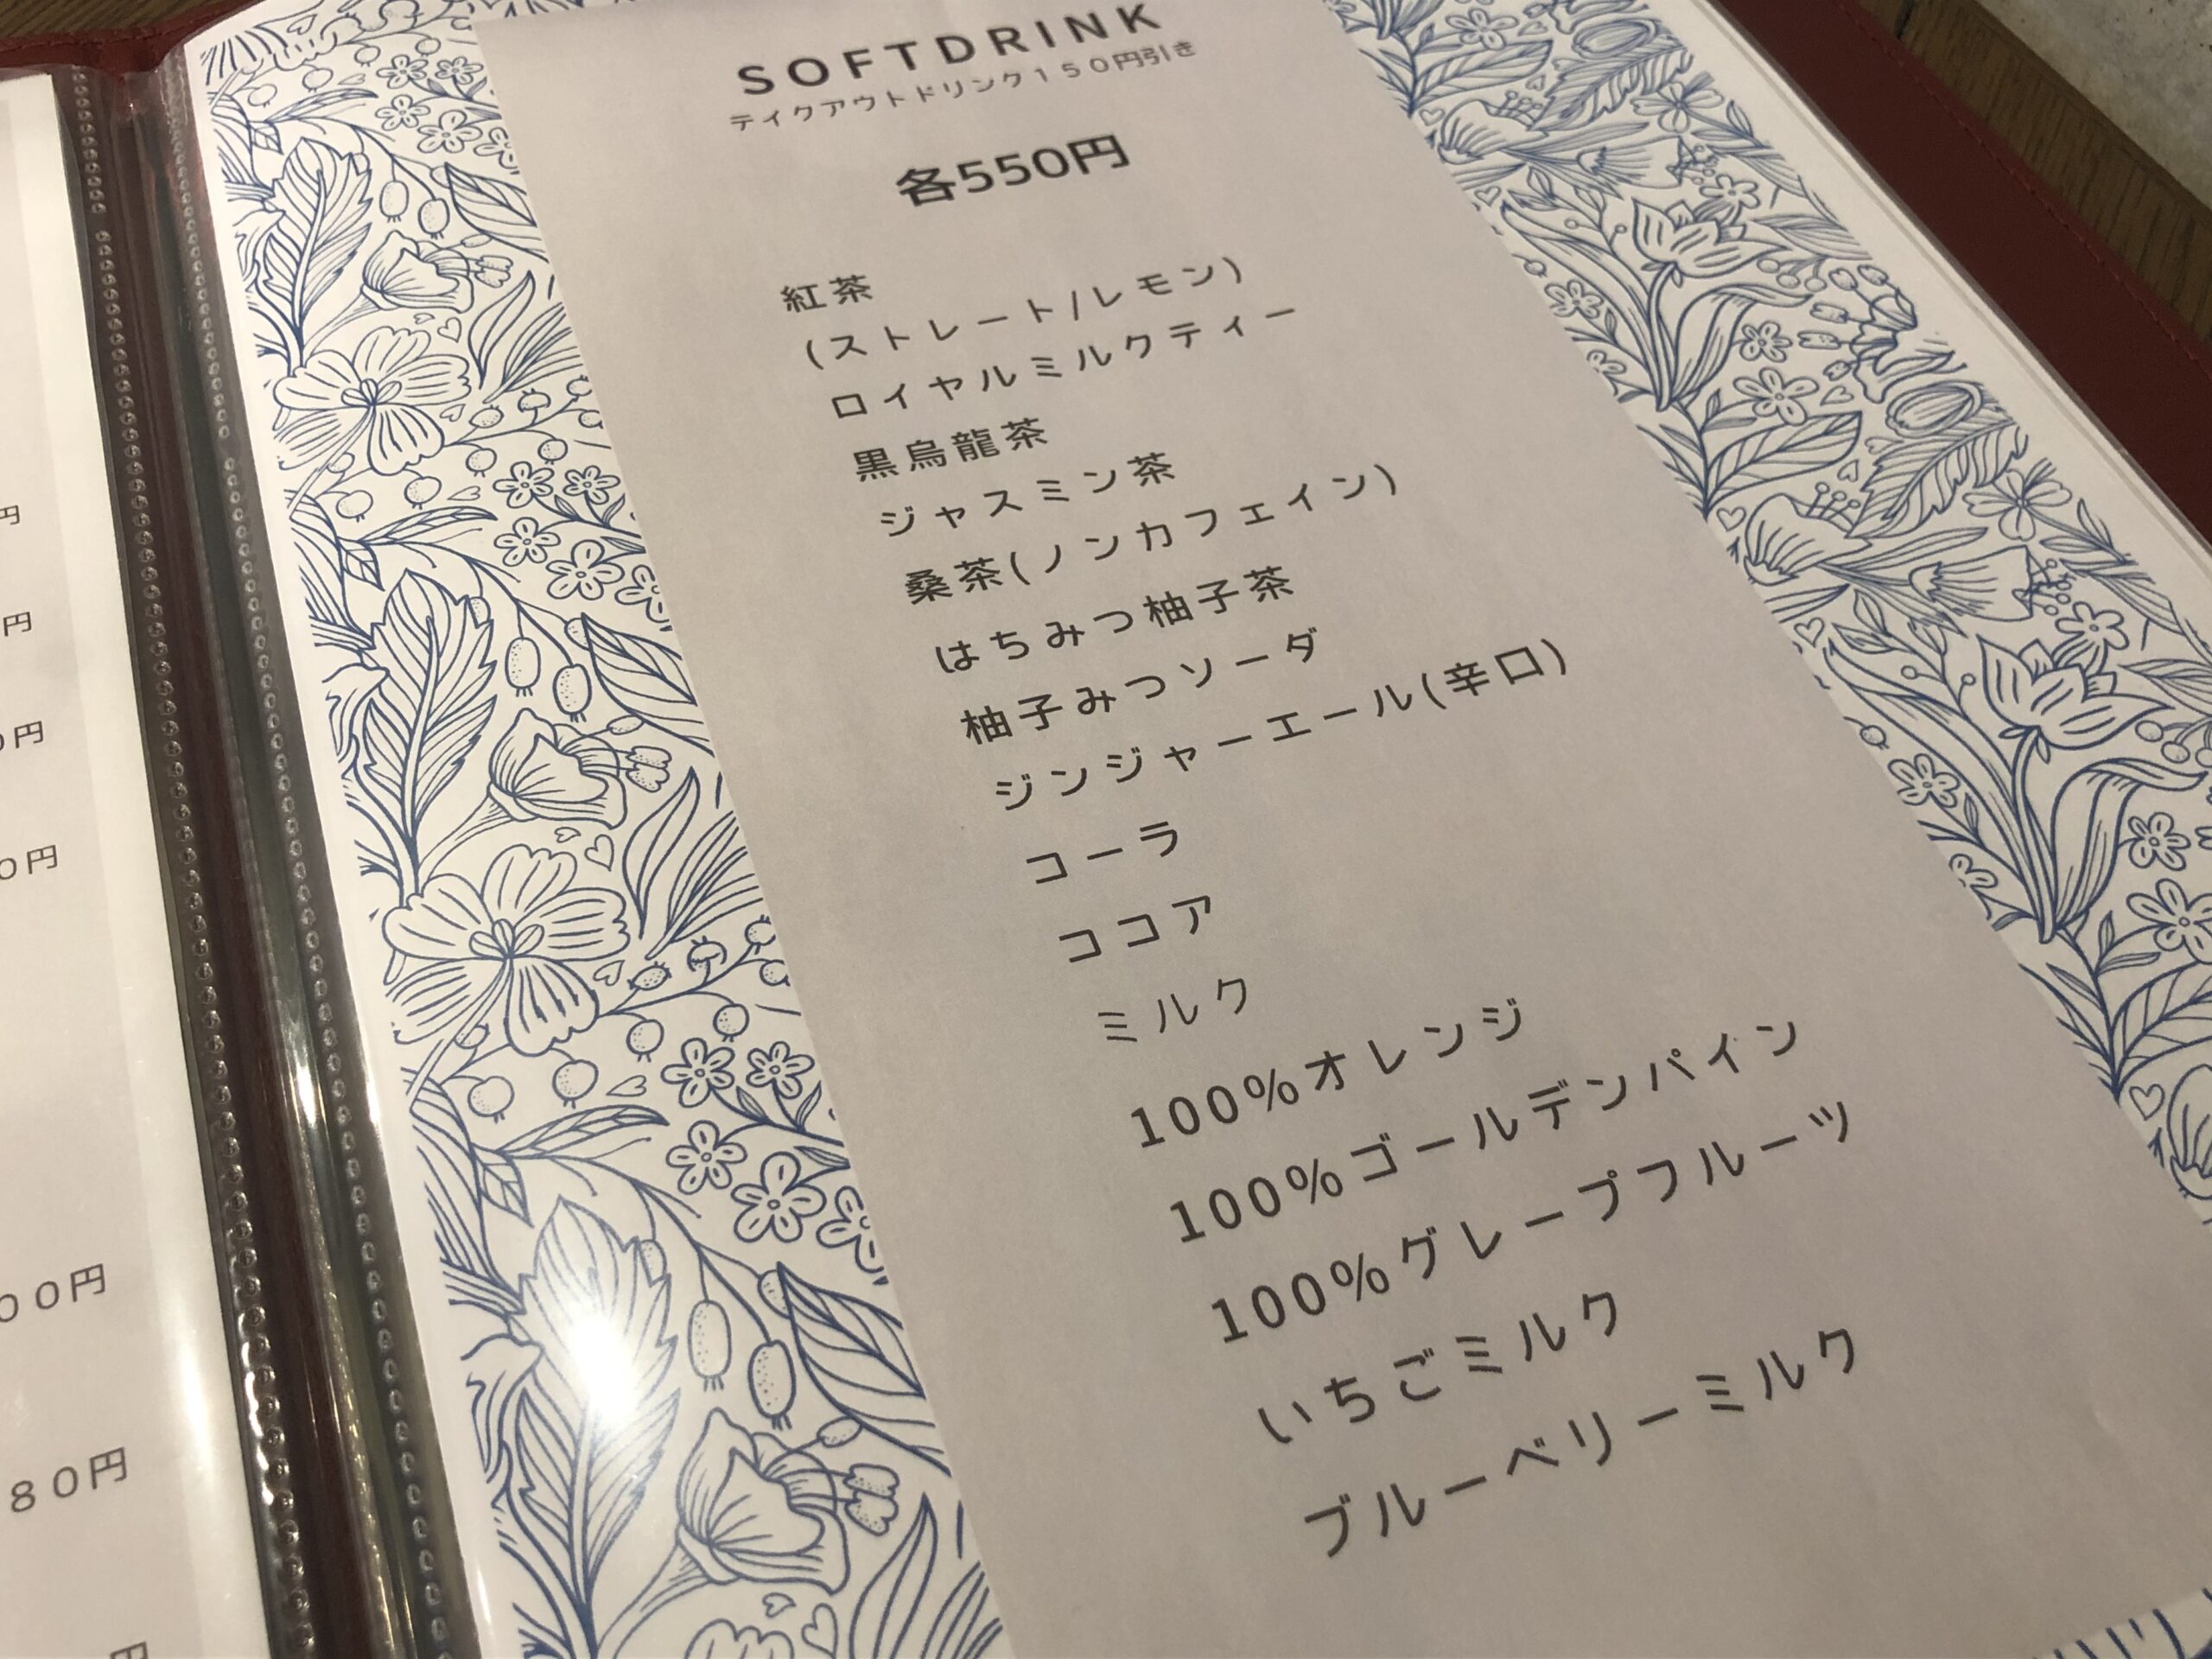 SOFTDRINK
テイクアウトドリンク１５０円引き
各550円
紅茶
(ストレート/レモン)
ロイヤルミルクティー
黒烏龍茶
ジャスミン茶
桑茶(ノンカフェイン)
はちみつ柚子茶
柚子みつソーダ
ジンジャーエール(辛口)
コーラ
ココア
ミルク
100%オレンジ
100%ゴールデンパイン
100%グレープフルーツ
いちごミルク
ブルーベリーミルク
円
円
0円
0円
００円
８０円
円